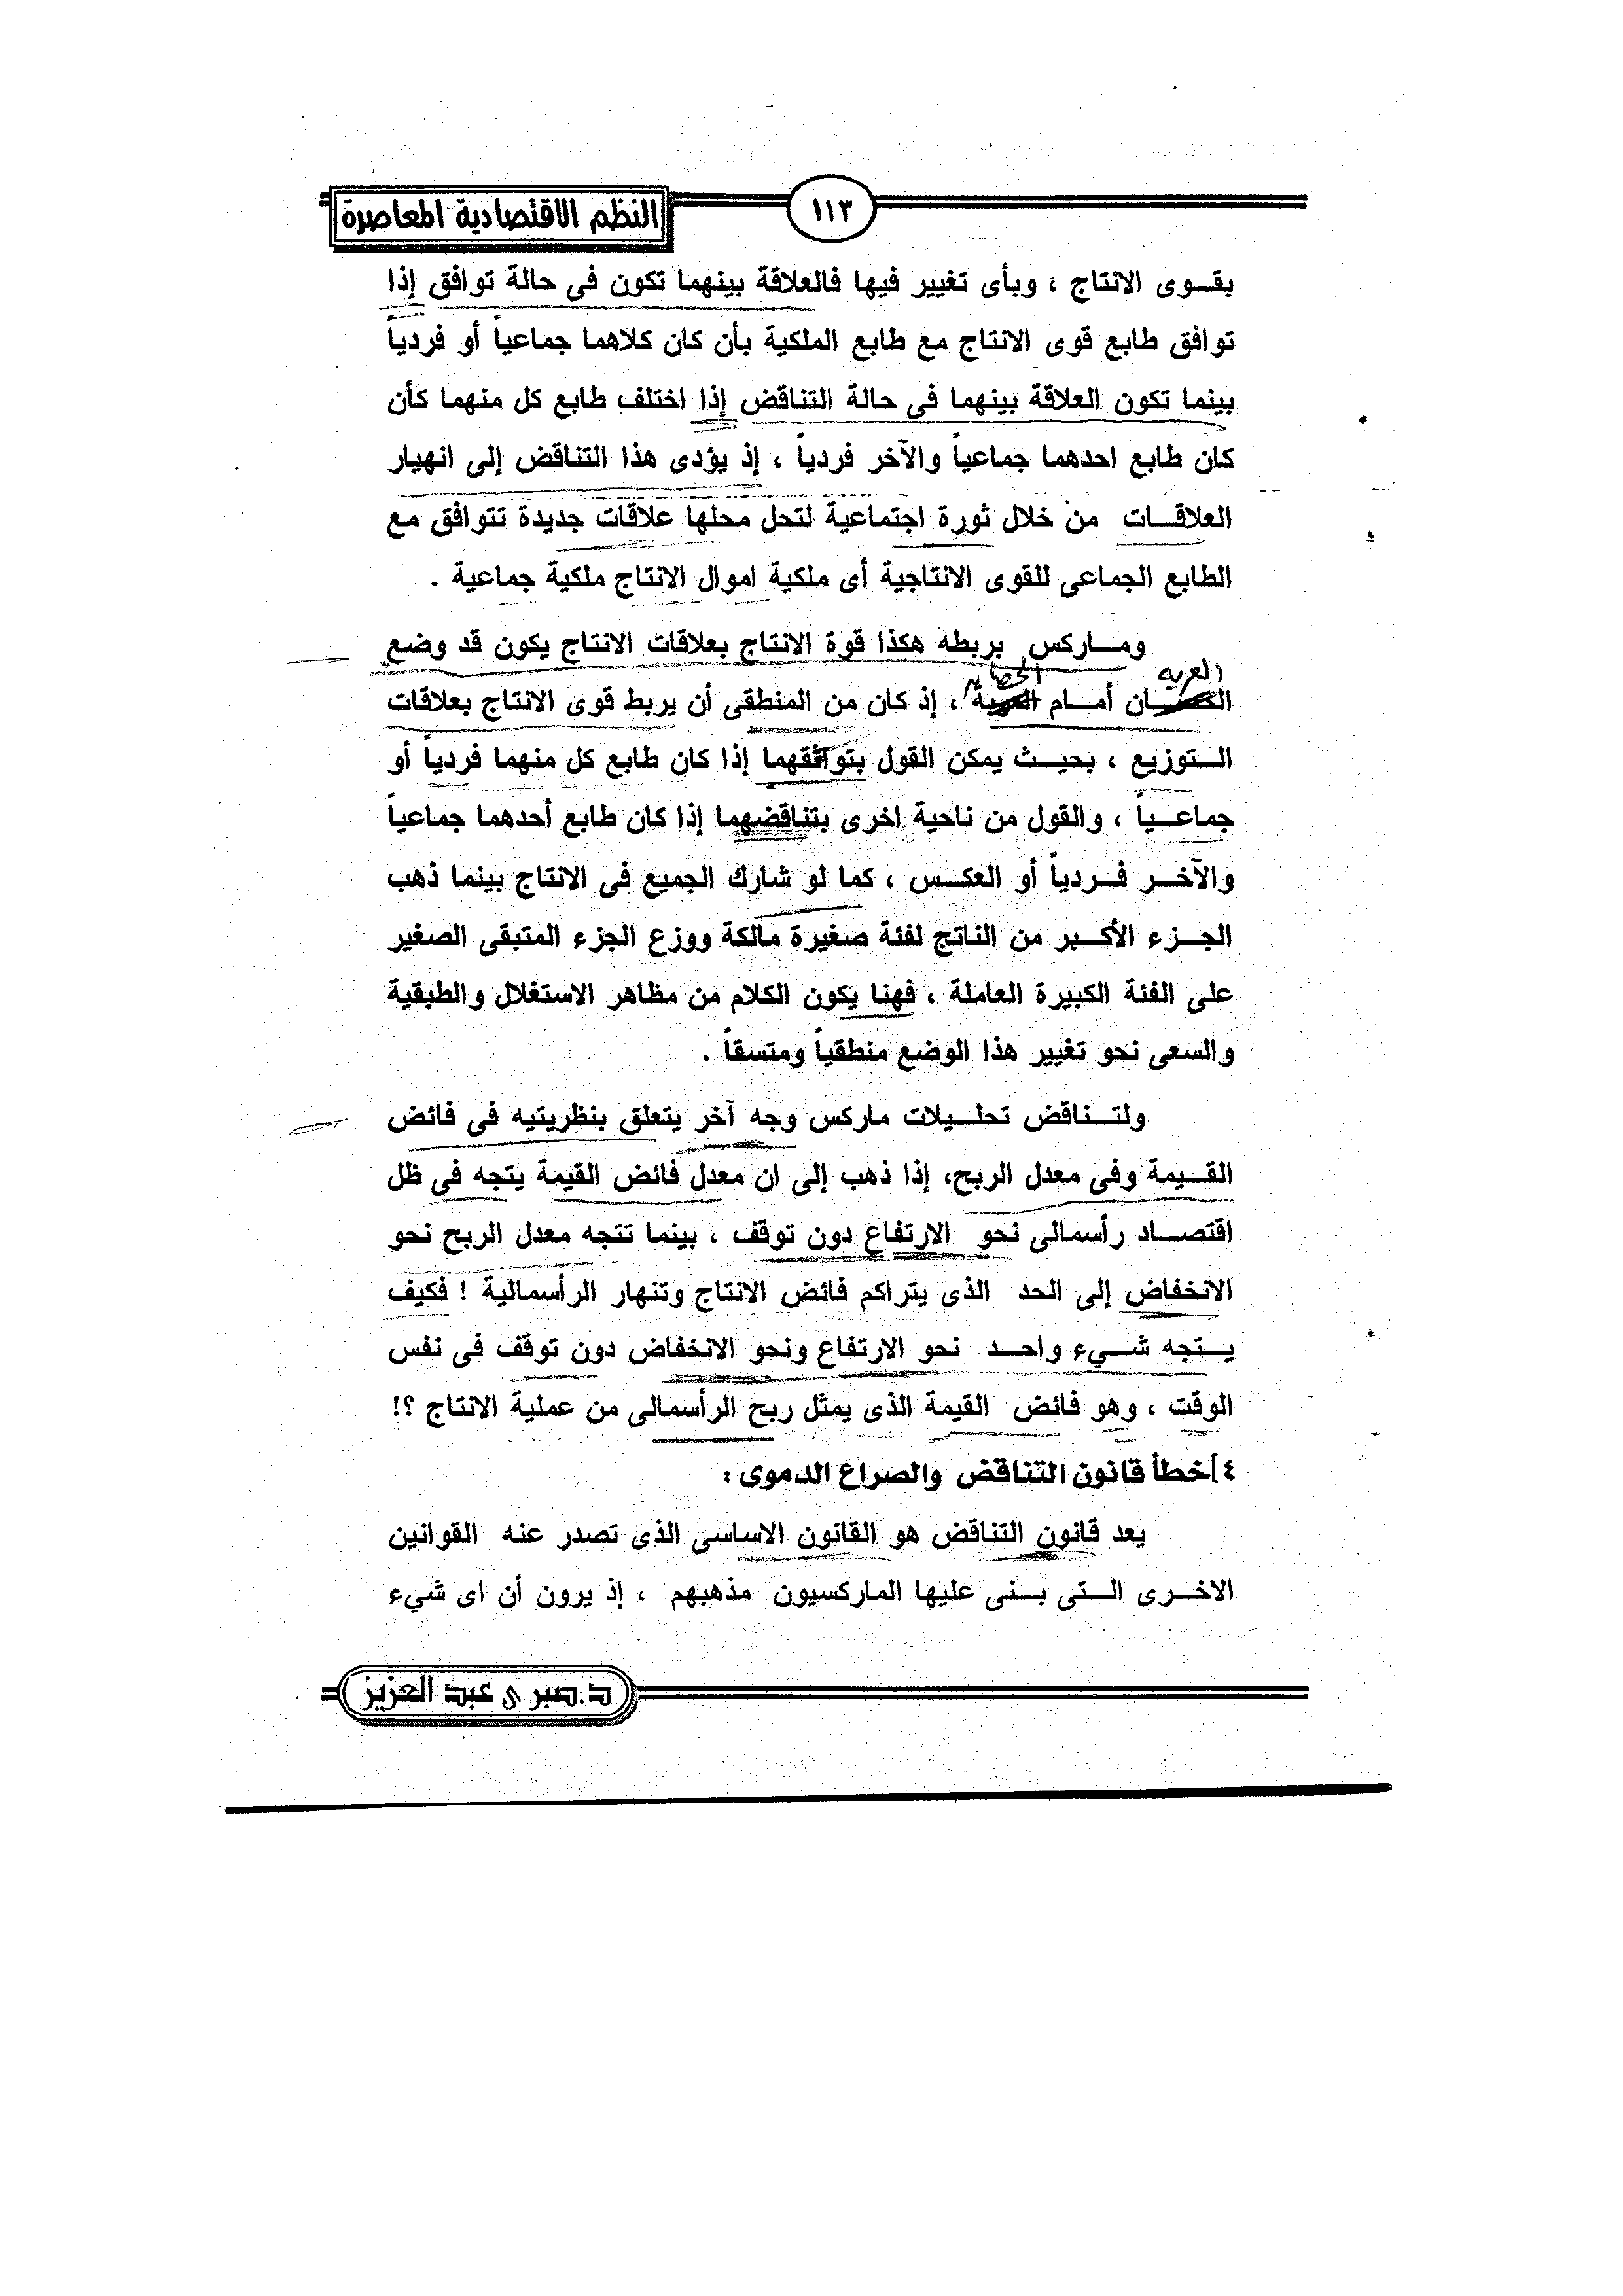 النظم الاقتصادية المعاصرة
١١٣
بقوى الانتاج ، وبأى تغيير فيها فالعلاقة بينهما تكون فى حالة توافق إذا
توافق طابع قوى الانتاج مع طابع الملكية بأن كان كلاهما جماعياً أو فردياً
بينما تكون العلاقة بينهما فى حالة التناقض إذا اختلف طابع كل منهما كأن
كان طابع احدهما جماعياً والآخر فردياً ، إذ يؤدى هذا التناقض إلى انهيار
العلاقات من خلال ثورة اجتماعية لتحل محلها علاقات جديدة تتوافق مع
الطابع الجماعى للقوى الانتاجية أى ملكية اموال الانتاج ملكية جماعية .
وماركس بربطه هكذا قوة الانتاج بعلاقات الانتاج يكون قد وضع
العربه
أمام ، إذ كان من المنطقى أن يربط قوى الانتاج بعلاقات
التوزيع ، بحيث يمكن القول بتوافقهما إذا كان طابع كل منهما فردياً أو
جماعياً ، والقول من ناحية اخرى بتناقضهما إذا كان طابع أحدهما جماعياً
والآخر فردياً أو العكس ، كما لو شارك الجميع فى الانتاج بينما ذهب
الجزء الأكبر من الناتج لفئة صغيرة مالكة ووزع الجزء المتبقى الصغير
على الفئة الكبيرة العاملة ، فهنا يكون الكلام من مظاهر الاستغلال والطبقية
والسعى نحو تغيير هذا الوضع منطقياً ومتسقاً .
ولتناقض تحليلات ماركس وجه آخر يتعلق بنظريتيه فى فائض
القيمة وفى معدل الربح، إذا ذهب إلى ان معدل فائض القيمة يتجه فى ظل
اقتصاد رأسمالى نحو الارتفاع دون توقف ، بينما تتجه معدل الربح نحو
الانخفاض إلى الحد الذى يتراكم فائض الانتاج وتنهار الرأسمالية ! فكيف
يتجه شيء واحد نحو الارتفاع ونحو الانخفاض دون توقف فى نفس
الوقت ، وهو فائض القيمة الذى يمثل ربح الرأسمالى من عملية الانتاج ؟!
٤]خطأ قانون التناقض والصراع الدموى :
يعد قانون التناقض هو القانون الاساسى الذى تصدر عنه القوانين
الاخرى التى بنى عليها الماركسيون مذهبهم ، إذ يرون أن اى شيء
د.صبرى عبد العزيز